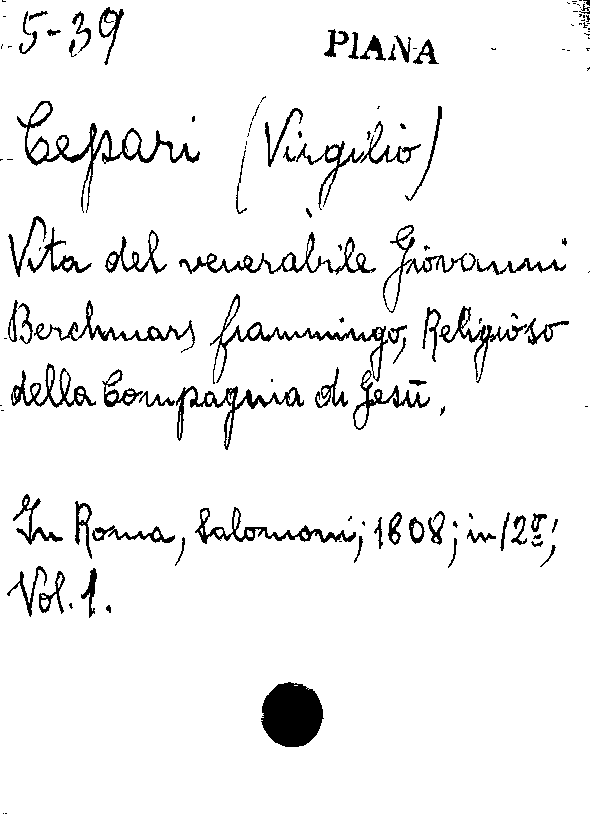 5-39
PIANA
Cepari (Virgilio)
Vita del venerabile Giovanni
Berchmans fiammingo, Religioso
della Compagnia di Gesù.
In Roma, Salomoni; 1808; in 12º;
Vol. 1.